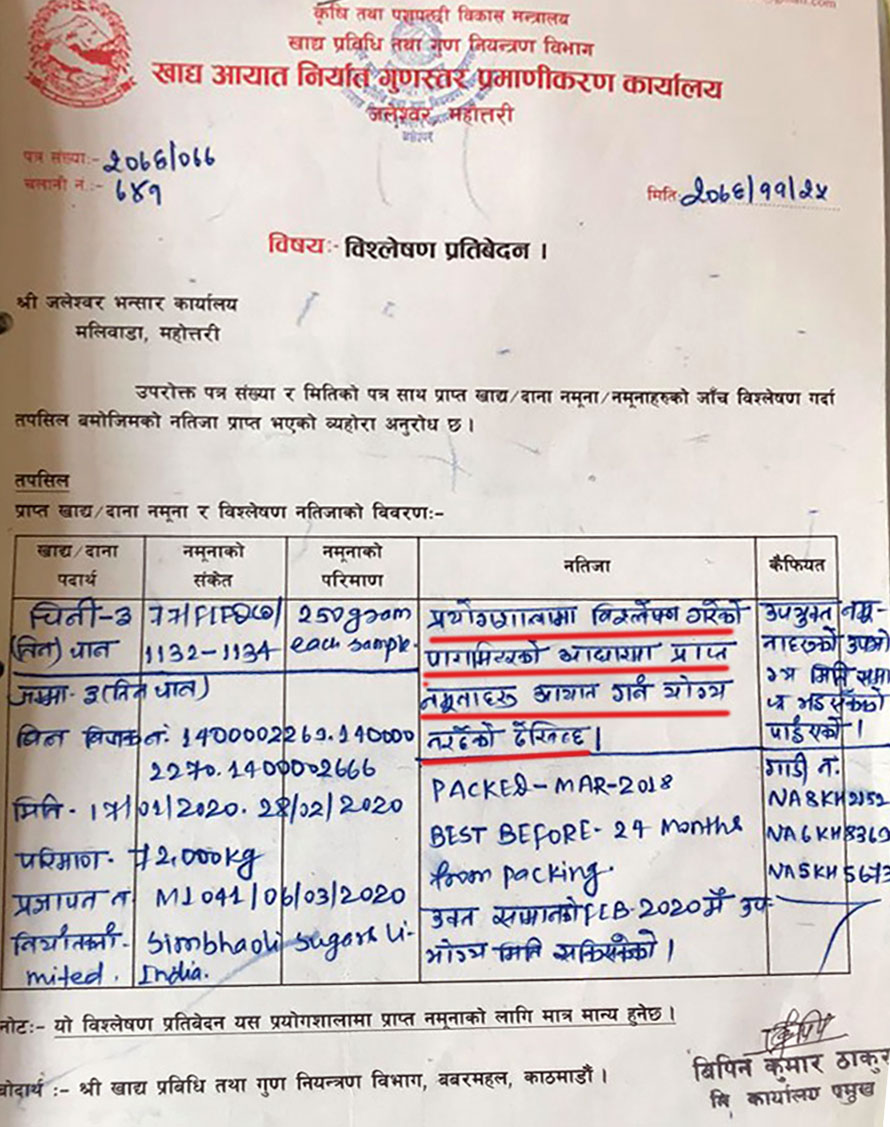 कृषि तथा पशुपन्छी विकास मन्त्रालय
खाद्य प्रविधि तथा गुण नियन्त्रण विभाग
खाद्य आयात निर्यात गुणस्तर प्रमाणीकरण कार्यालय
जलेश्वर, महोत्तरी
पत्र संख्याः- २०७६/०७७
चलानी नं.:- ६४१
मितिः २०७६/११/२५
विषयः- विश्लेषण प्रतिबेदन ।
श्री जलेश्वर भन्सार कार्यालय
मलिवाडा, महोत्तरी
उपरोक्त पत्र संख्या र मितिको पत्र साथ प्राप्त खाद्य/दाना नमूना/नमूनाहरुको जाँच विश्लेषण गर्दा
तपसिल बमोजिमको नतिजा प्राप्त भएको व्यहोरा अनुरोध छ ।
तपसिल
प्राप्त खाद्य/दाना नमूना र विश्लेषण नतिजाको विवरणः-
खाद्य/दाना पदार्थ
नमूनाको संकेत
नमूनाको परिमाण
नतिजा
कैफियत
चिनी-३ (तिन) थान
1132-1134
250gram each sample.
प्रयोगशालामा विश्लेषण गरेको
पारामिटरको आधारमा प्राप्त
नमूनाहरु आयात गर्न योग्य
नरहेको देखिन्छ ।
उपर्युक्त नमू-
नाहरुको उपभो
ग्य मिति समा
प्त भई सकेको
पाईएको ।
जम्मा-३ (तिन थान)
नं: 1400002269.140000
2270.1400002666
मिति- 17/01/2020. 28/02/2020
परिमाण- 72,000kg
प्रज्ञापन नं M1041/06/03/2020
निर्यातकर्ता- Simbhaoli Sugars Li-
mited. India.
PACKED-MAR-2018
BEST BEFORE- 24 Months
from packing.
उक्त सामानको FEB-2020 मै उप-
भोग्य मिति सकिसकेको ।
गाडी नं.
NA8KH2152
NA6KH8369
NA5KH5673
नोटः- यो विश्लेषण प्रतिबेदन यस प्रयोगशालामा प्राप्त नमूनाको लागि मात्र मान्य हुनेछ ।
बोदार्थ :- श्री खाद्य प्रविधि तथा गुण नियन्त्रण विभाग, बबरमहल, काठमाडौं ।
बिपिन कुमार ठाकुर
नि कार्यालय प्रमुख